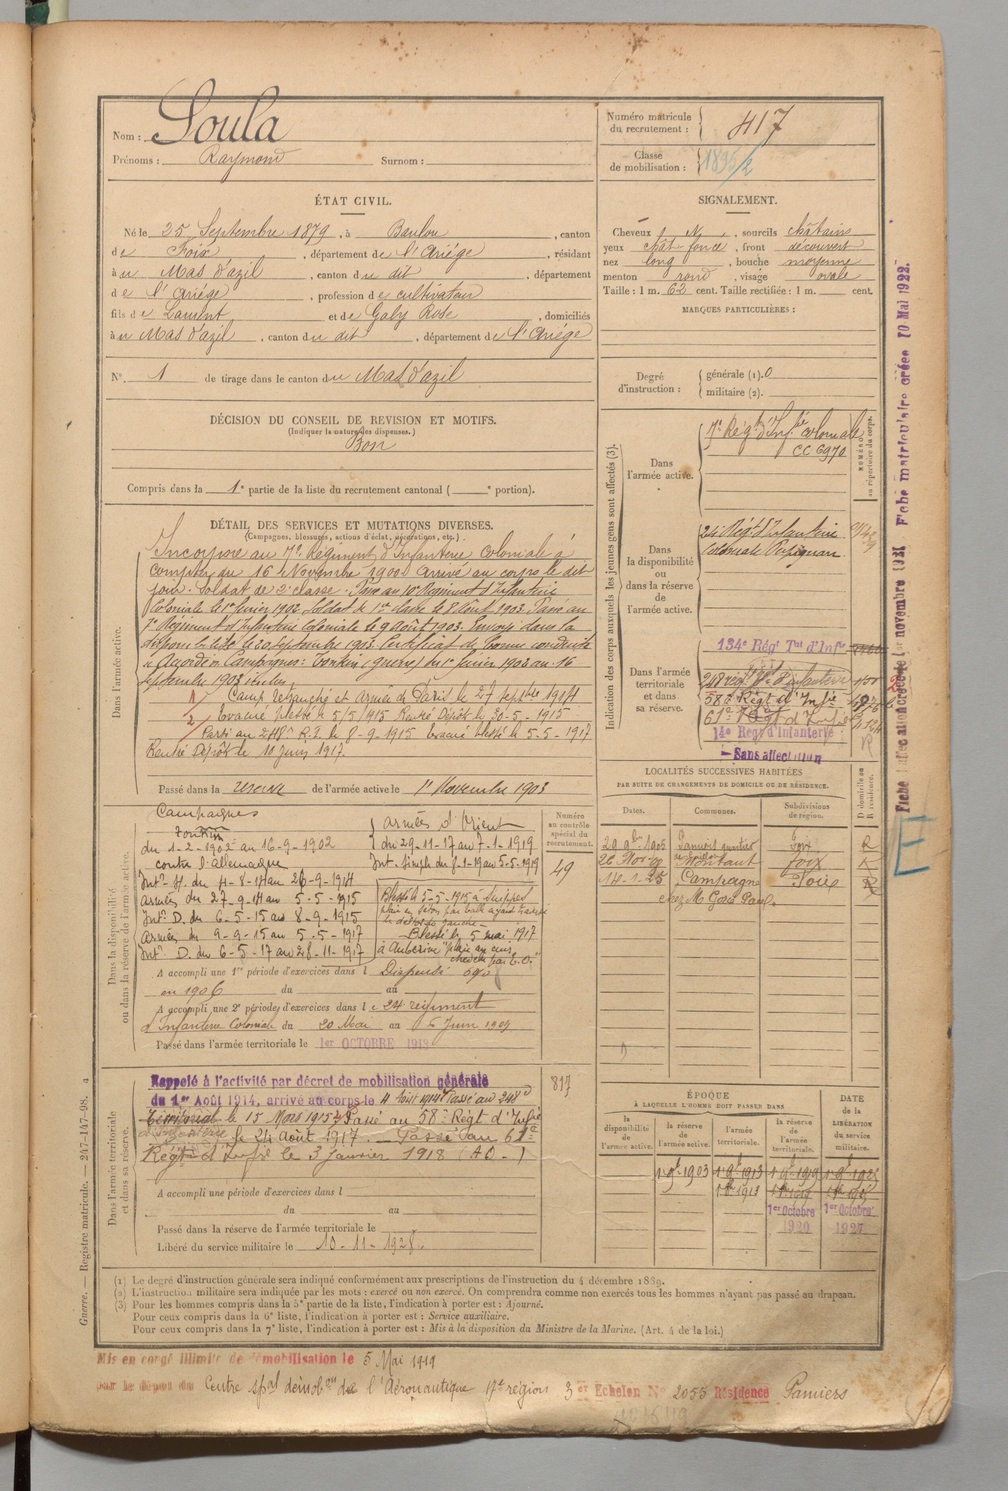 Nom : Soula
Prénoms : Raymond Surnom :
Numéro matricule du recrutement : 417
Classe de mobilisation :
ÉTAT CIVIL.
Né le 25 Septembre 1879, à Baulou, canton
de Foix, département de l'Ariège, résidant
à u Mas d'azil, canton du dit, département
de l'Ariège, profession de cultivateur
fils de Laurent et de Galy Rose, domiciliés
à u Mas d'azil, canton du dit, département de l'Ariège
N° 1 de tirage dans le canton du Mas d'azil
SIGNALEMENT.
Cheveux N, sourcils châtains
yeux chât foncé, front découvert
nez long, bouche moyenne
menton rond, visage ovale
Taille : 1 m. 62 cent. Taille rectifiée : 1 m. cent.
MARQUES PARTICULIÈRES :
Degré d'instruction : générale (1). 0
militaire (2).
DÉCISION DU CONSEIL DE REVISION ET MOTIFS.
(Indiquer la nature des dispenses.)
Bon
Compris dans la 1e partie de la liste du recrutement cantonal ( e portion).
DÉTAIL DES SERVICES ET MUTATIONS DIVERSES.
(Campagnes, blessures, actions d'éclat, décorations, etc.)
Dans l'armée active.
Incorporé au 7e Régiment d'Infanterie Coloniale à
compter du 16 Novembre 1900. Arrivé au corps le dit
jour. Soldat de 2e classe. Passé au 10e Régiment d'Infanterie
Coloniale le 1er février 1902. Soldat de 1re classe le 8 Août 1903. Passé au
7e Régiment d'Infanterie Coloniale le 9 Août 1903. Envoyé dans la
disponibilité le 20 septembre 1903. Certificat de bonne conduite
Accordé. Campagnes : Tonkin (guerre) du 1er février 1902 au 16
septembre 1903
Camp retranché et Armée de Paris le 27 septbre 1914
Evacué blessé le 5/5/1915 Rentré Dépôt le 30-5-1915
Parti au 248e R.I. le 8-9-1915 Evacué blessé le 5-5-1917
Rentré Dépôt le 10 juin 1917.
Passé dans la réserve de l'armée active le 1er Novembre 1903
Indication des corps auxquels les jeunes gens sont affectés (3).
Dans l'armée active.
7e Régt d'Inf.te coloniale
CC 6970
NUMÉRO au répertoire du corps.
Dans la disponibilité ou dans la réserve de l'armée active.
24e Régt d'Infanterie
Coloniale Perpignan
Dans l'armée territoriale et dans sa réserve.
134e Rég Tal d'Infie
58e Régt d'Infie
61e Régt d'Infie
14e Rég d'Infanterie
Sans affectation
Fiche matriculaire créée 10 Mai 1922.
Dans la disponibilité ou dans la réserve de l'armée active.
Campagnes
Tonkin
du 1-2-1902 au 16-9-1902
contre l'Allemagne
Intr. H. du 4-8-14 au 26-9-1914
Armées du 27-9-14 au 5-5-1915
Intr. D. du 6-5-15 au 8-9-1915
Armées du 9-9-15 au 5-5-1917
Intr. D. du 6-5-17 au 28-11-1917
Armées d'Orient
du 29-11-17 au 7-1-1919
Intr. simple du 8-1-19 au 5-5-1919
Blessé le 5 mai 1917
à Aubérive
Numéro au contrôle spécial du recrutement.
49
A accompli une 1re période d'exercices dans l Dispensé
en 1906 du au
A accompli une 2e période d'exercices dans l e 24 régiment
d'Infanterie Coloniale du 20 Mai au 5 Juin 1909
Passé dans l'armée territoriale le 1er OCTOBRE 1913
LOCALITÉS SUCCESSIVES HABITÉES
PAR SUITE DE CHANGEMENTS DE DOMICILE OU DE RÉSIDENCE.
Dates. Communes. Subdivisions de région. D domicile ou R résidence.
Foix R
Foix
14-1-25 Campagne Foix
Dans l'armée territoriale et dans sa réserve.
Rappelé à l'activité par décret de mobilisation générale
du 1er Août 1914, arrivé au corps le 4 Août 1914 Passé au 248e
Territorial le 15 Mars 1915 Passé au 58e Régt d'Infie
le 24 Août 1917. Passé au 61e
Régt d'Infie le 3 Janvier 1918 (AO-)
817
A accompli une période d'exercices dans l
du au
Passé dans la réserve de l'armée territoriale le
Libéré du service militaire le 10-11-1928.
ÉPOQUE
À LAQUELLE L'HOMME DOIT PASSER DANS
DATE DE LA LIBÉRATION du service militaire.
la disponibilité de l'armée active. la réserve de l'armée active. l'armée territoriale. la réserve de l'armée territoriale.
1er Octobre 1920 1er Octobre 1927
(1) Le degré d'instruction générale sera indiqué conformément aux prescriptions de l'instruction du 4 décembre 1889.
(2) L'instruction militaire sera indiquée par les mots : exercé ou non exercé. On comprendra comme non exercés tous les hommes n'ayant pas passé au drapeau.
(3) Pour les hommes compris dans la 5e partie de la liste, l'indication à porter est : Ajourné.
Pour ceux compris dans la 6e liste, l'indication à porter est : Service auxiliaire.
Pour ceux compris dans la 7e liste, l'indication à porter est : Mis à la disposition du Ministre de la Marine. (Art. 4 de la loi.)
Guerre. — Registre matricule. — 247-147-98.
Mis en congé illimité de démobilisation le 5 Mai 1919
par le dépôt du Centre spal démobon de l'Aéronautique 17e région 3er Echelon N° 2055 Résidence Pamiers